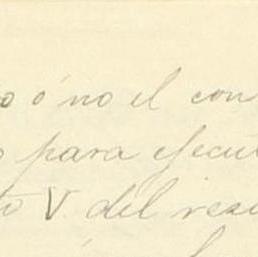 o ó no el con
o para ejecu
to V. del resu